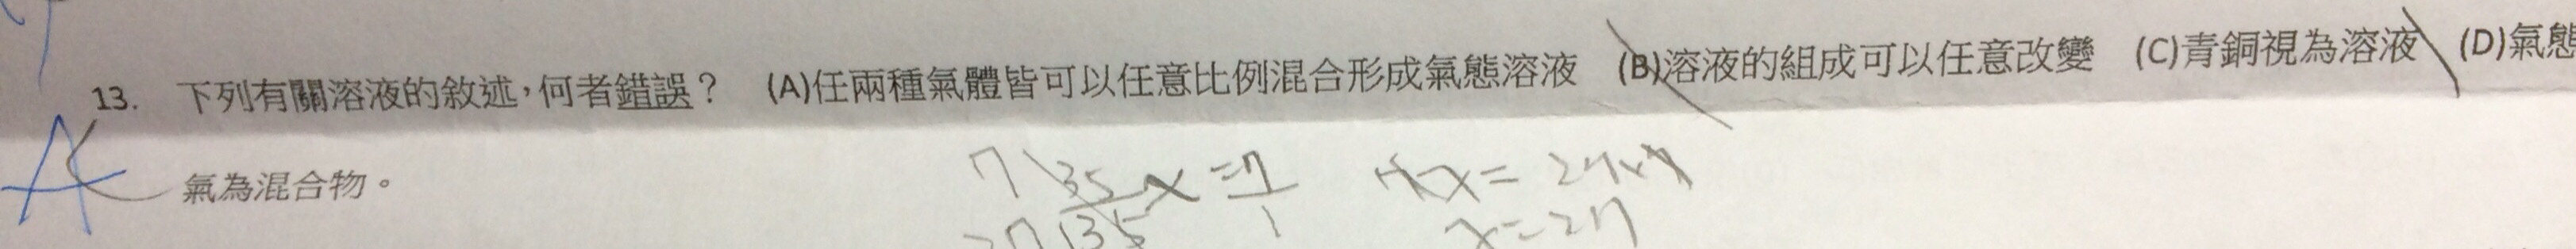 13. 下列有關溶液的敘述，何者錯誤？ (A)任兩種氣體皆可以任意比例混合形成氣態溶液 (B)溶液的組成可以任意改變 (C)青銅視為溶液 (D)氣態
氣為混合物。
A
x=27